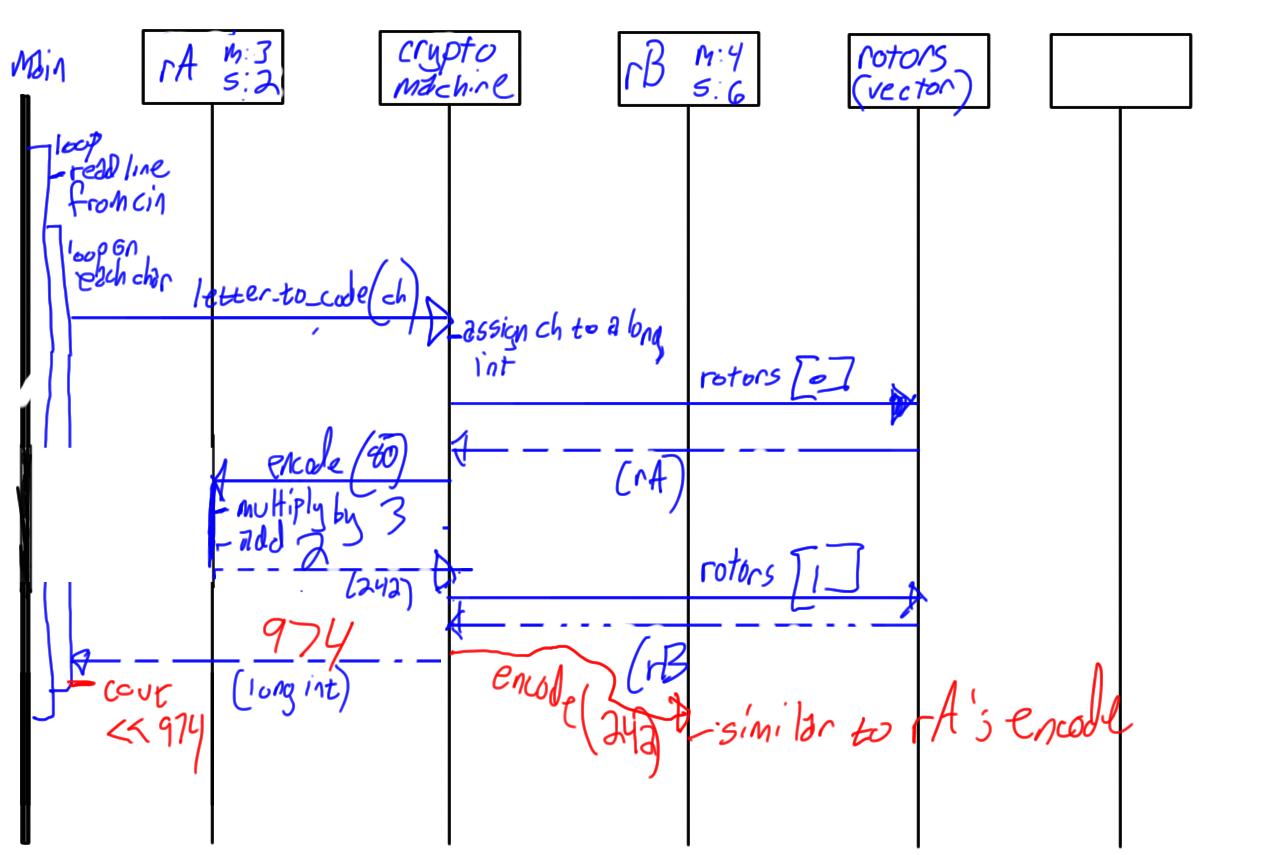 Main
rA m:3
s:2
crypto
machine
rB m:4
s:6
rotors
(vector)
loop
- read line
from cin
loop on
each char
letter_to_code(ch)
- assign ch to a long
int
rotors [0]
(rA)
encode (80)
- multiply by 3
- add 2
(242)
rotors [1]
(rB
974
(long int)
encode(242)
- similar to rA's encode
cout
<< 974